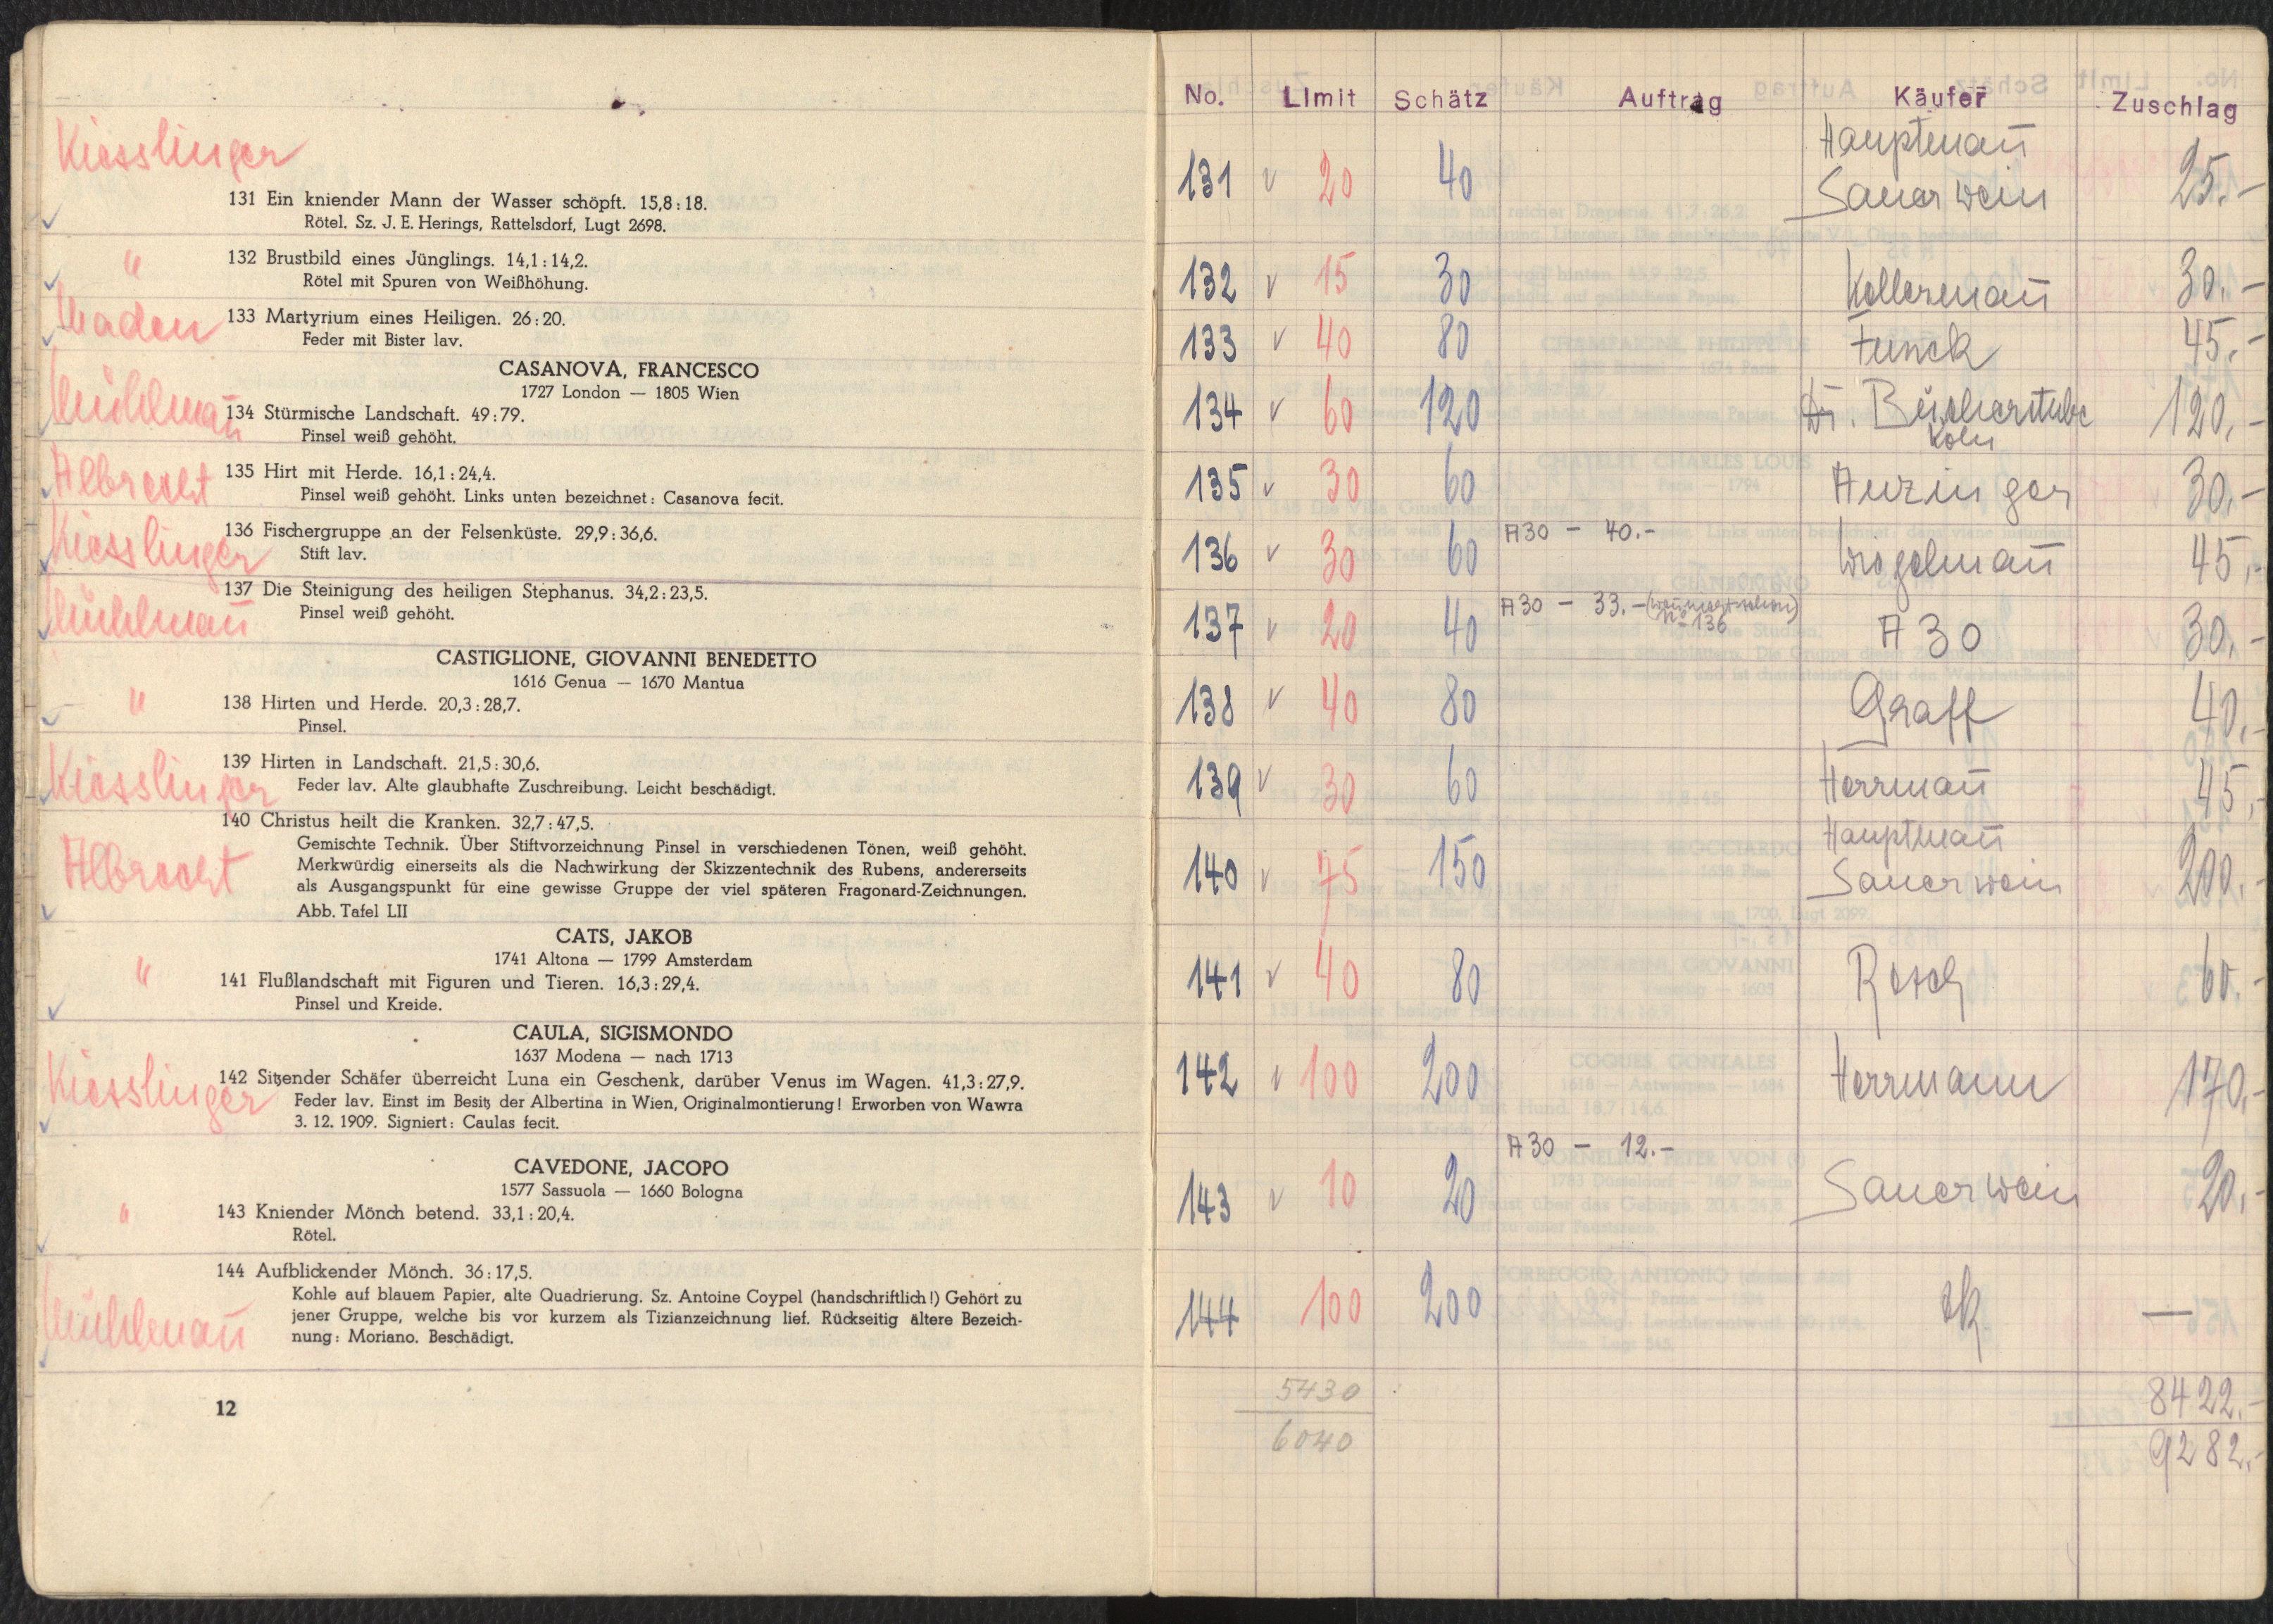 Kiesslinger
131 Ein kniender Mann der Wasser schöpft. 15,8 : 18.
Rötel. Sz. J. E. Herings, Rattelsdorf, Lugt 2698.
" 132 Brustbild eines Jünglings. 14,1 : 14,2.
Rötel mit Spuren von Weißhöhung.
133 Martyrium eines Heiligen. 26 : 20.
Feder mit Bister lav.
CASANOVA, FRANCESCO
1727 London — 1805 Wien
Mühlmañ 134 Stürmische Landschaft. 49 : 79.
Pinsel weiß gehöht.
Albrecht 135 Hirt mit Herde. 16,1 : 24,4.
Pinsel weiß gehöht. Links unten bezeichnet: Casanova fecit.
Kiesslinger 136 Fischergruppe an der Felsenküste. 29,9 : 36,6.
Stift lav.
Mühlmañ 137 Die Steinigung des heiligen Stephanus. 34,2 : 23,5.
Pinsel weiß gehöht.
CASTIGLIONE, GIOVANNI BENEDETTO
1616 Genua — 1670 Mantua
" 138 Hirten und Herde. 20,3 : 28,7.
Pinsel.
Kiesslinger 139 Hirten in Landschaft. 21,5 : 30,6.
Feder lav. Alte glaubhafte Zuschreibung. Leicht beschädigt.
Albrecht 140 Christus heilt die Kranken. 32,7 : 47,5.
Gemischte Technik. Über Stiftvorzeichnung Pinsel in verschiedenen Tönen, weiß gehöht.
Merkwürdig einerseits als die Nachwirkung der Skizzentechnik des Rubens, andererseits
als Ausgangspunkt für eine gewisse Gruppe der viel späteren Fragonard-Zeichnungen.
Abb. Tafel LII
CATS, JAKOB
1741 Altona — 1799 Amsterdam
" 141 Flußlandschaft mit Figuren und Tieren. 16,3 : 29,4.
Pinsel und Kreide.
CAULA, SIGISMONDO
1637 Modena — nach 1713
Kiesslinger 142 Sitzender Schäfer überreicht Luna ein Geschenk, darüber Venus im Wagen. 41,3 : 27,9.
Feder lav. Einst im Besitz der Albertina in Wien, Originalmontierung! Erworben von Wawra
3. 12. 1909. Signiert: Caulas fecit.
CAVEDONE, JACOPO
1577 Sassuola — 1660 Bologna
" 143 Kniender Mönch betend. 33,1 : 20,4.
Rötel.
144 Aufblickender Mönch. 36 : 17,5.
Mühlmañ Kohle auf blauem Papier, alte Quadrierung. Sz. Antoine Coypel (handschriftlich!) Gehört zu
jener Gruppe, welche bis vor kurzem als Tizianzeichnung lief. Rückseitig ältere Bezeich-
nung: Moriano. Beschädigt.
12
No. Limit Schätz Auftrag Käufer Zuschlag
131 v 20 40 Hauptmañ Sauerwein 25.-
132 v 15 30 Kellermañ 30.-
133 v 40 80 Funck 45.-
134 v 60 120 Bücherstube Köln 120.-
135 v 30 60 Aunzinger 30.-
136 v 30 60 A30 - 40.- 45.-
137 v 20 40 A30 - 33.- No 136 A30 30.-
138 v 40 80 Graff 40.-
139 v 30 60 Herrmañ 45.-
140 v 75 150 Hauptmañ Sauerwein 200.-
141 v 40 80 60.-
142 v 100 200 Herrmann 170.-
143 v 10 20 A30 - 12.- Sauerwein 20.-
144 100 200 —
5430 8422.-
6040 9282.-